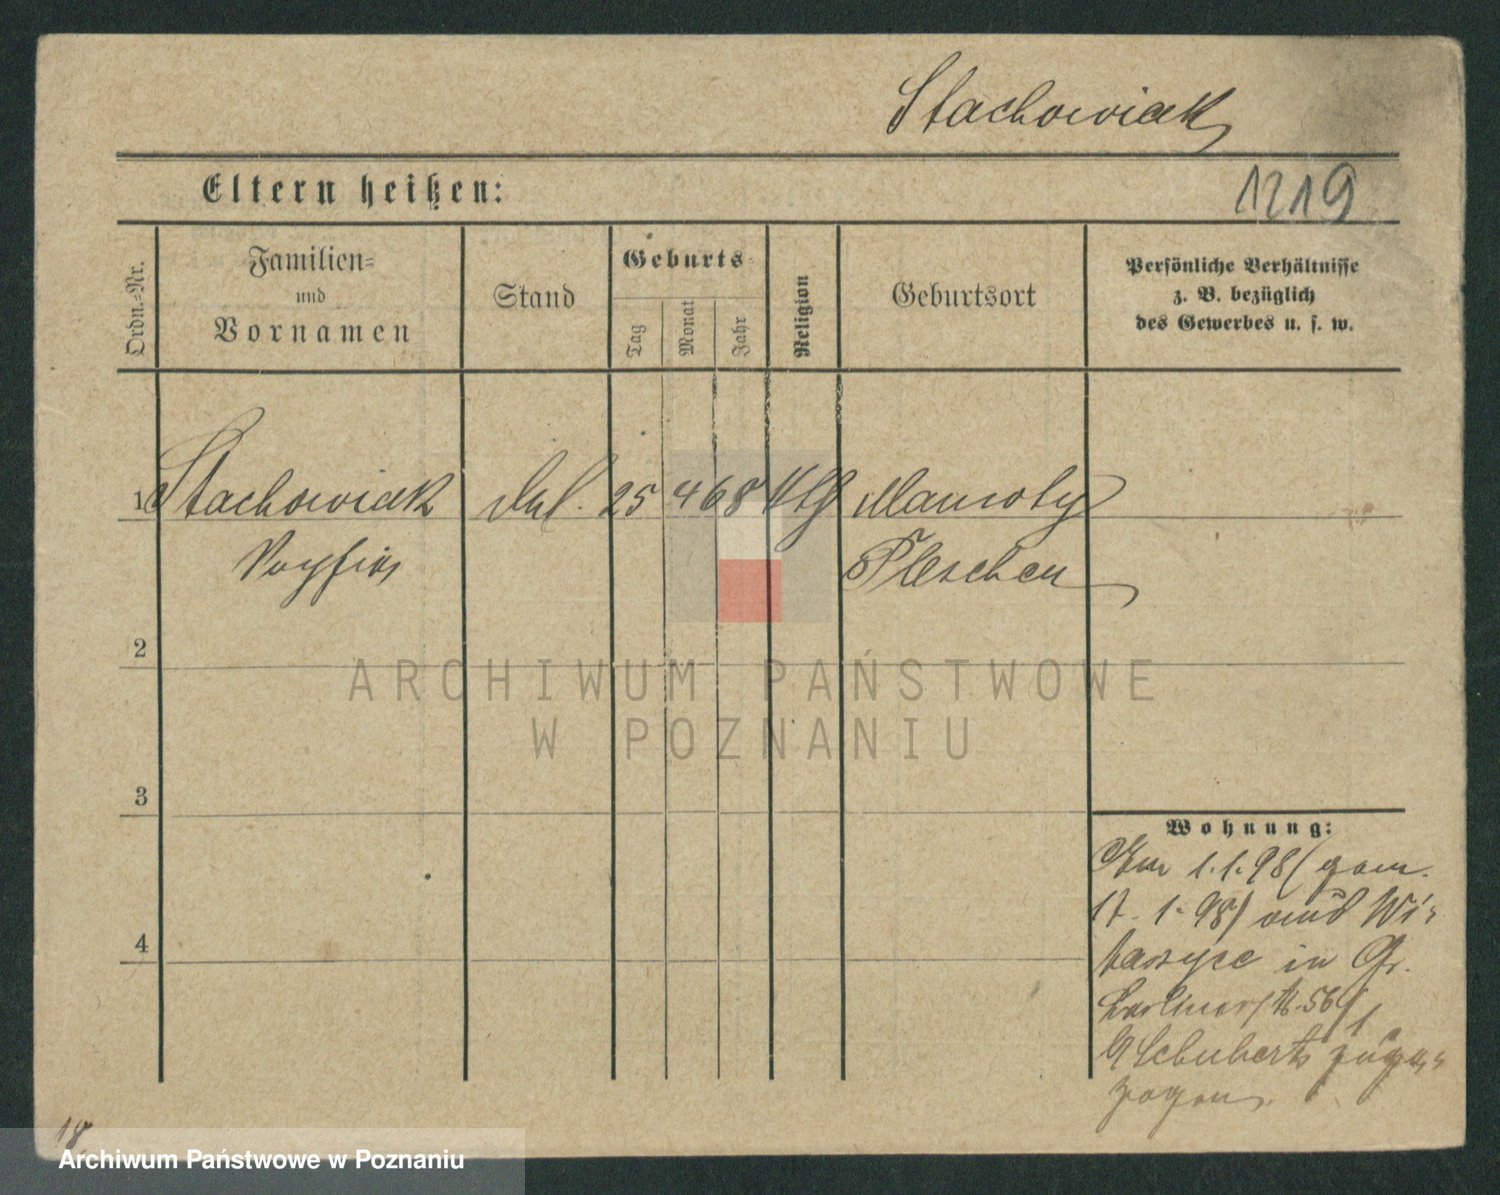 Stachowiak
Eltern heißen:
1219
Ordn.=Nr.
Familien=
und
Vornamen
Stand
Geburts=
Tag
Monat
Jahr
Religion
Geburtsort
Persönliche Verhältnisse
z. B. bezüglich
des Gewerbes u. s. w.
1 Stachowiak 25 4 68 kth
Sophia Pleschen
2
ARCHIWUM PAŃSTWOWE
W POZNANIU
3
Wohnung:
Am 1.1.98 (gem.
17. 1. 98) aus Wi=
taszyce in Gr.
Berlinerst. 56
Schubert zuge=
zogen.
4
18
Archiwum Państwowe w Poznaniu